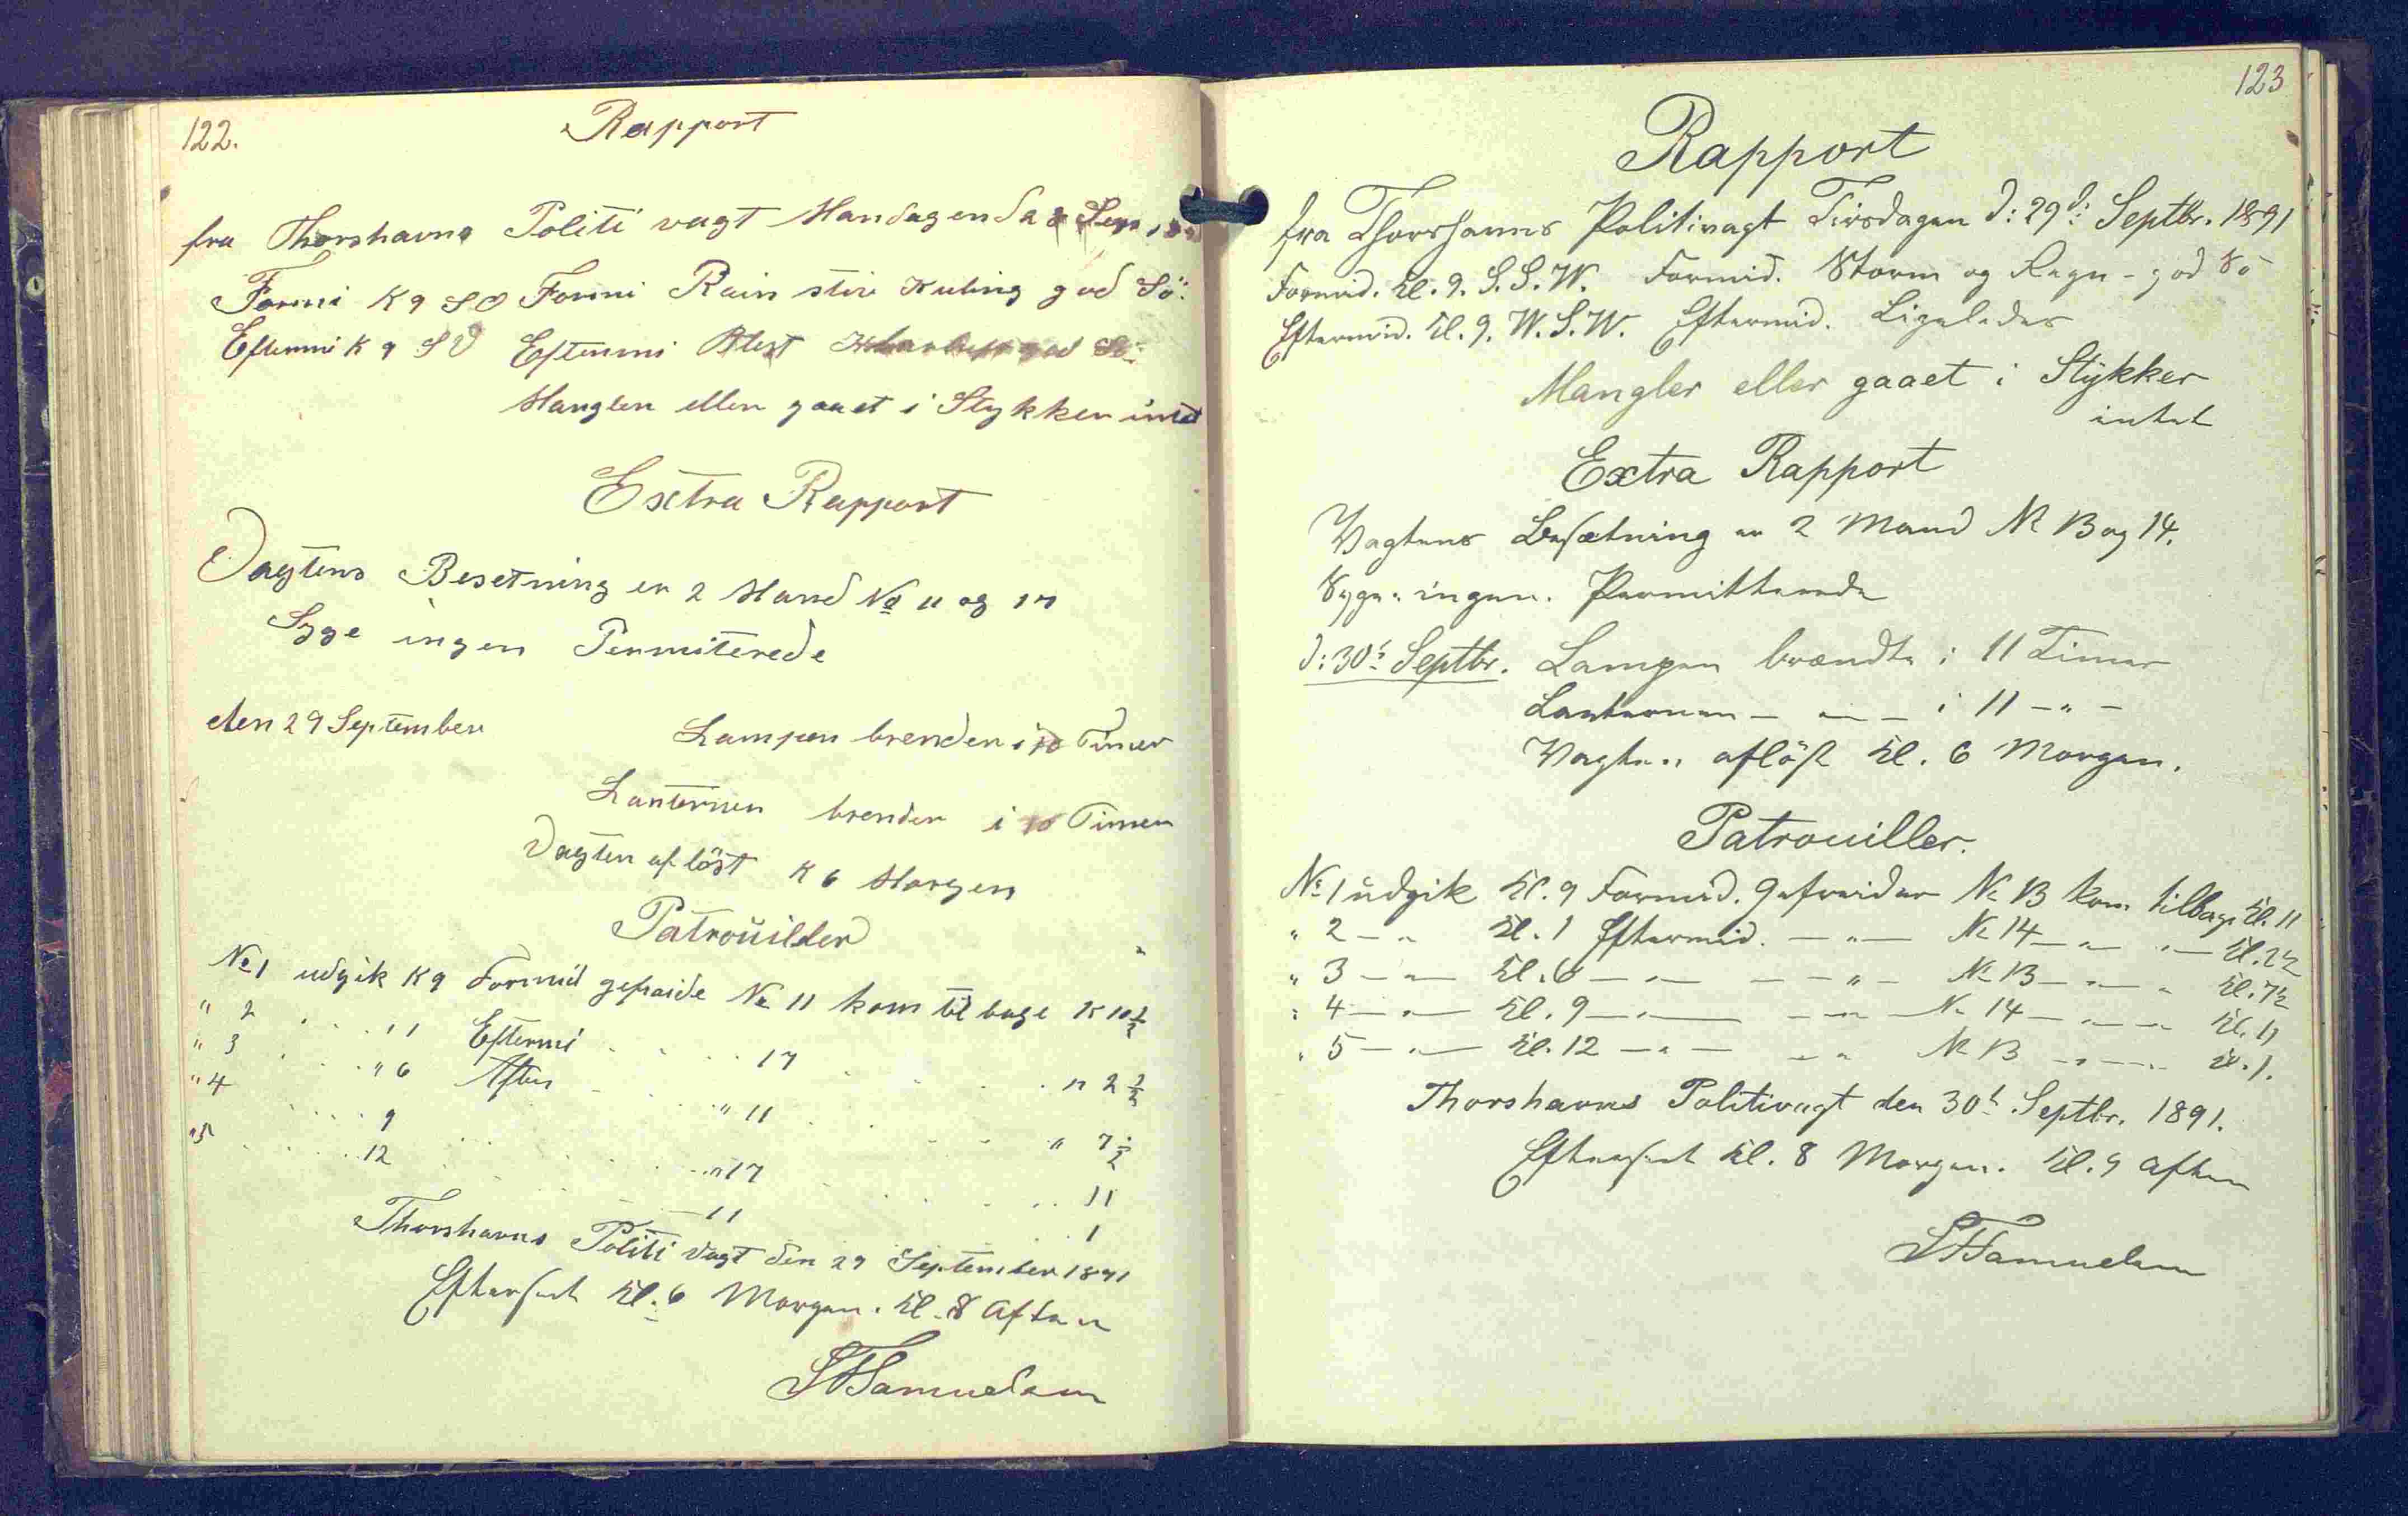 122.
Rapport
fra Thorshavns Politi vagt Mandagen d 28 Sep
Formi K 9 SO Formi Rain stiv Kuling god Sö:
Eftermi K 9 SV Eftermi Blest god Sö:
Mangler eller gaaet i Stykker intet
Extra Rapport
Vagtens Besetning er 2 Mand No 11 og 17
Syge ingen Permiterede
den 29 September Lampen brender i 10 Timer
Lanternen brender i 10 Timer
Vagten aflöst K 6 Morgen
Patrouilder
No 1 udgik K 9 Formid gefraide No 11 kom til bage K 10 1/2
" 2 . . . 11 Eftermi . . . 17 . . . " 2 1/2
" 3 . . . " 6 Aften . . . " 11 . . . " 7 1/2
" 4 . . . 9 . . . " 17 . . . 11
" 5 . . . 12 . . . — 11 . . . 1
Thorshavns Politi Vagt den 29 September 1891
Efterseet Kl. 6 Morgen. Kl. 8 Aften
Samuelsen
123
Rapport
fra Thorshavns Politivagt Tirsdagen d: 29d: Septbr. 1891
Formid. Kl. 9. S.S.W. Formid. Storm og Regn - god Sö
Eftermid. Kl. 9. W.S.W. Eftermid. Ligeledes
Mangler eller gaaet i Stykker
intet
Extra Rapport
Vagtens Besætning er 2 Mand No 13 og 14.
Syge: ingen. Permitterede
d: 30t Septbr. Lampen brændte i 11 Timer
Lanternen — " — i 11 — " —
Vagten aflöst Kl. 6 Morgen.
Patrouiller.
No 1 udgik Kl. 9 Formid. Gefreider No 13 kom tilbage Kl. 11
" 2 — " Kl. 1 Eftermid. — " — No 14 — " — " — Kl. 2 1/2
" 3 — " — Kl. 6 — " — — " — No 13 — " — " Kl. 7 1/2
" 4 — " — Kl. 9 — " — — " — No 14 — " — " Kl. 11
" 5 — " — Kl. 12 — " — — " No 13 — " — Kl. 1.
Thorshavns Politivagt den 30t Septbr. 1891.
Efterseet Kl. 8 Morgen. Kl. 9 Aften
Samuelsen